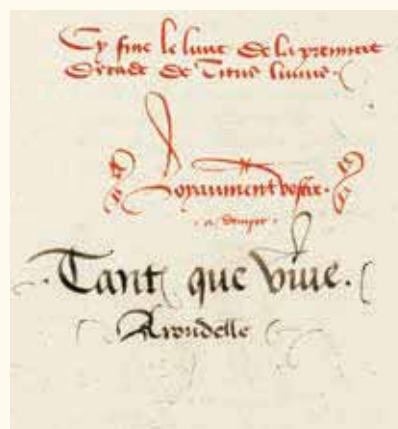 Cy fine le liure de la premiere
Decade de Titus liuius.
Loyaument vostre.
Tant que viue.
Arondelle